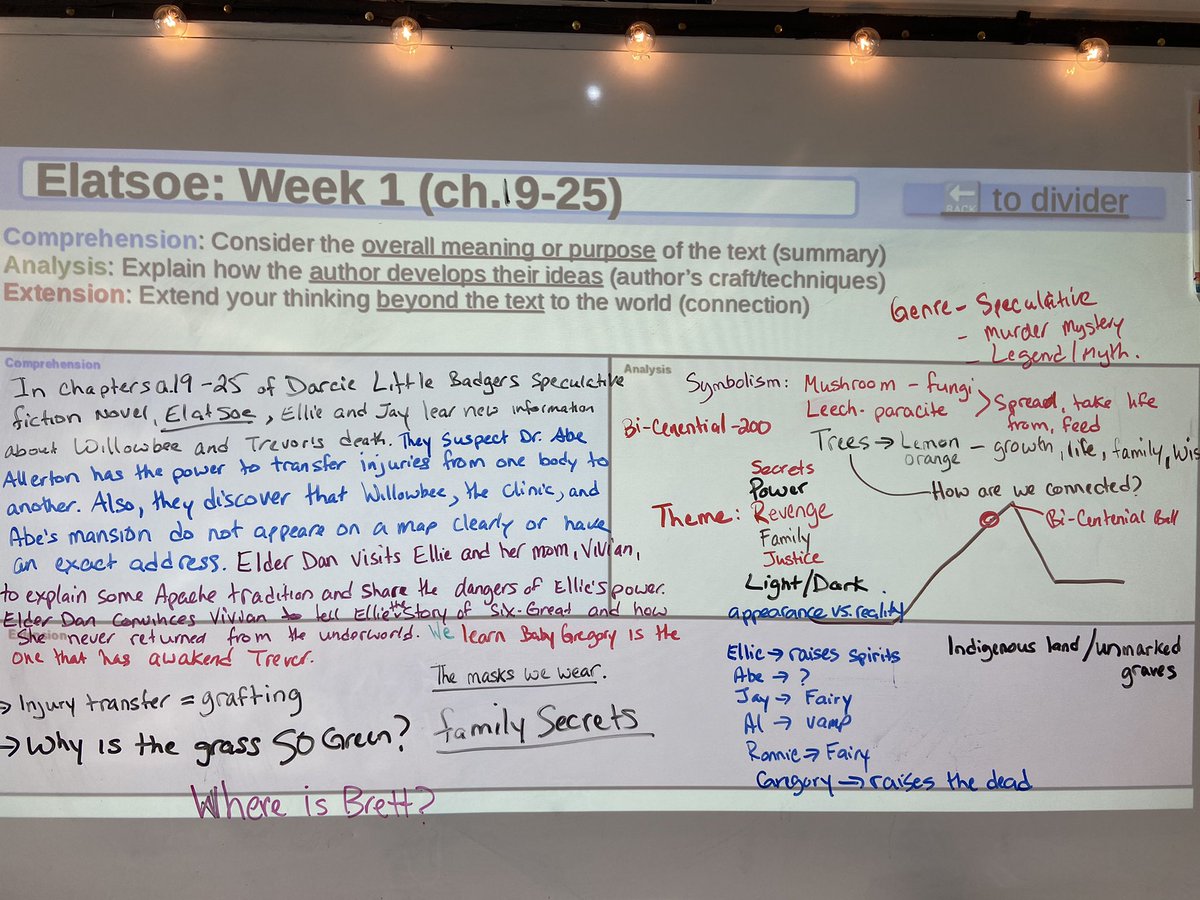 Elatsoe: Week 1 (ch.19-25)
BACK
to divider
Comprehension: Consider the overall meaning or purpose of the text (summary)
Analysis: Explain how the author develops their ideas (author's craft/techniques)
Extension: Extend your thinking beyond the text to the world (connection)
Genre - Speculative
- murder mystery
- Legend/Myth.
Comprehension
In chapters 19-25 of Darcie Little Badgers Speculative
fiction novel, Elatsoe, Ellie and Jay lear new information
about Willowbee and Trevor's death. They suspect Dr. Abe
Allerton has the power to transfer injuries from one body to
another. Also, they discover that Willowbee, the Clinic, and
Abe's mansion do not appeare on a map clearly or have
an exact address. Elder Dan visits Ellie and her mom, Vivian,
to explain some Apache tradition and share the dangers of Ellie's power.
Elder Dan convinces Vivian to tell Ellie the story of Six-Great and how
She never returned from the underworld. We learn Baby Gregory is the
one that has awakend Trever.
Analysis
Symbolism: Mushroom - fungi
Leech - paracite
Spread, take life
from, feed
Bi-Cenential-200
Trees → Lemon
orange
- growth, life, family, Wis
How are we connected?
Bi-Centenial Ball
Theme:
Secrets
Power
Revenge
Family
Justice
Light/Dark
appearance vs. reality
→ Injury transfer = grafting
→ Why is the grass SO Green?
The masks we wear.
family Secrets
Where is Brett?
Ellie → raises spirits
Abe → ?
Jay → Fairy
Al → vamp
Ronnie → Fairy
Gregory → raises the dead
Indigenous land/unmarked
graves